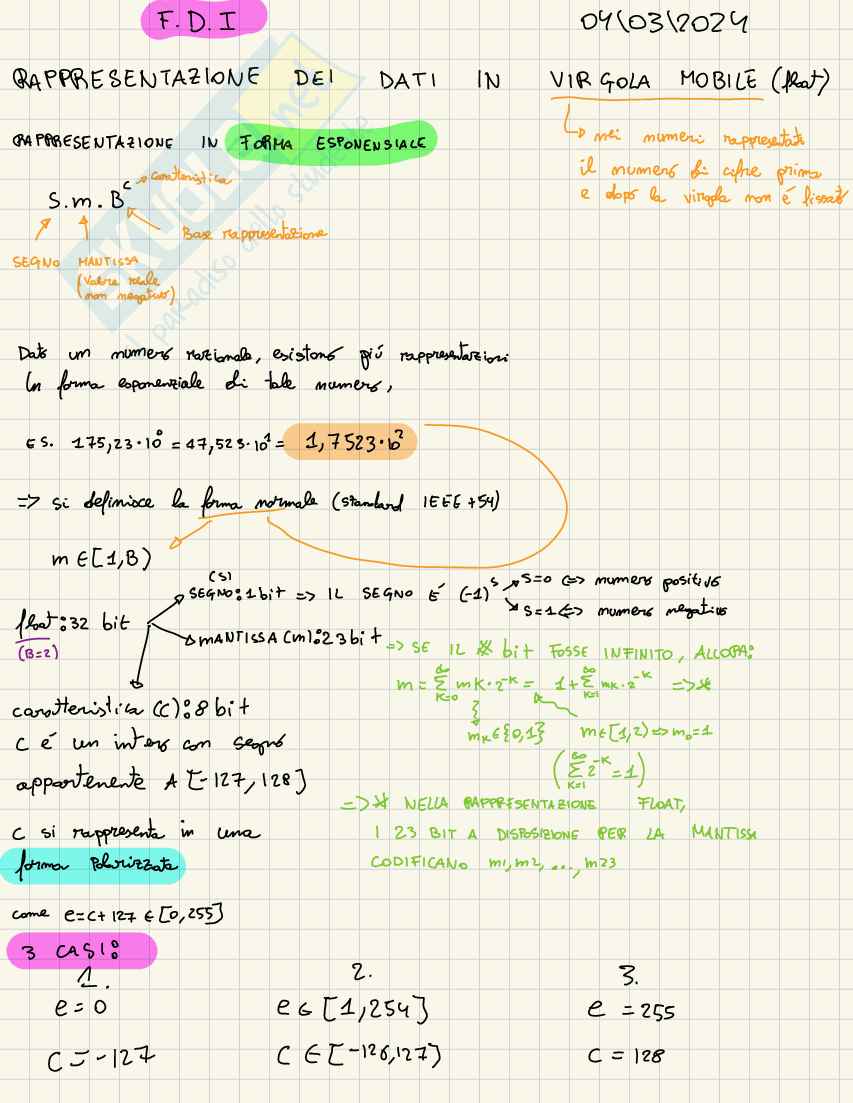 F.D.I
04\03\2024
RAPPRESENTAZIONE DEI DATI IN VIRGOLA MOBILE (float)
RAPPRESENTAZIONE IN FORMA ESPONENSIALE
↳ nei numeri rappresentati
il numero di cifre prima
e dopo la virgola non é fissato
S.m.B^c → caratteristica
Base rappresentazione
SEGNO MANTISSA
(Valore reale
non negativo)
SKUOLA.net
il paradiso dello studente
Dato un numero razionale, esistono piú rappresentazioni
In forma esponenziale di tale numero,
ES. 175,23·10^0 = 47,523·10^1 = 1,7523·10^2
=> si definisce la forma normale (standard IEEE +54)
m ∈ [1,B)
(S)
SEGNO: 1 bit => IL SEGNO É (-1)^s
S=0 <=> numero positivo
S=1 <=> numero negativo
float: 32 bit
(B=2)
MANTISSA (m): 23 bit
=> SE IL # bit FOSSE INFINITO, ALLORA:
m = ∑_{K=0}^{∞} mK·2^{-K} = 1+∑_{K=1}^{∞} mK·2^{-K} => *
mK ∈ {0,1} m∈[1,2) => m0=1
(∑_{K=1}^{∞} 2^{-K} = 1)
caratteristica (C): 8 bit
C é un intero con segno
appartenente A [-127, 128]
=> * NELLA RAPPRESENTAZIONE FLOAT,
I 23 BIT A DISPOSIZIONE PER LA MANTISSA
CODIFICANO m1, m2, ..., m23
C si rappresenta in una
forma Polarizzata
come e=c+127 ∈ [0,255]
3 CASI:
1. 2. 3.
e = 0 e ∈ [1,254] e = 255
C = -127 C ∈ [-126,127] C = 128